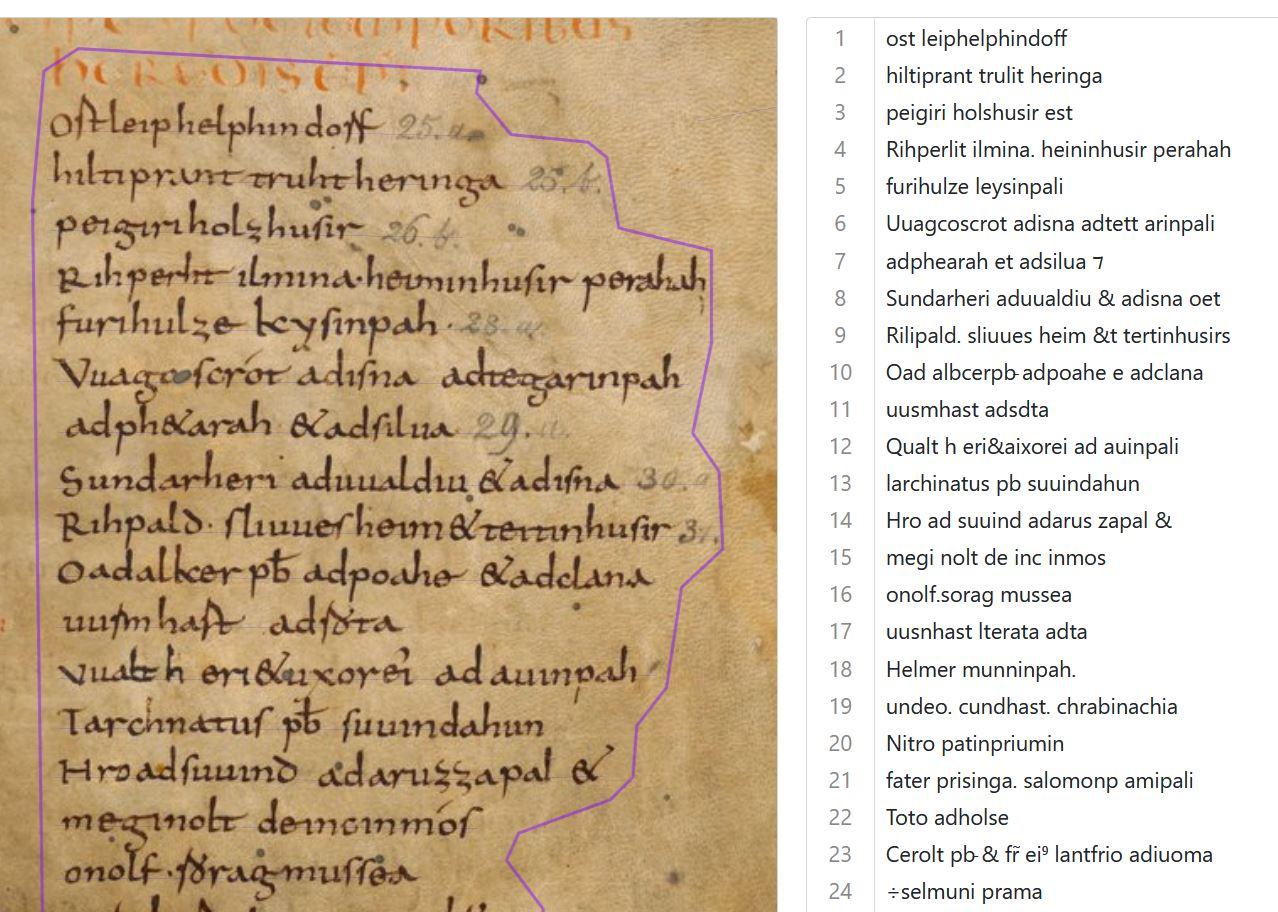 Ostleip helphindorf 25. a.
hiltiprant truht heringa 25. b.
peigiri holzhusir 26. b.
Rihperht ilmina· heiminhusir perahah
furihulze keysinpah· 28. a.
Vuagoscrót adisna adtegarinpah
adph&arah &adsilua 29. a.
Sundarheri aduualdiu &adisna 30. a
Rihpald· sliuuesheim &tertinhusir 31.
Oadalker pb̄ adpoahe &adclana
adsdta
Vualt h eri&uxorei ad auuinpah
Tarchnatus pb̄ suuindahun
Hroadsuuind adaruzzapal &
meginolt
onolf·
1 ost leiphelphindoff
2 hiltiprant trulit heringa
3 peigiri holshusir est
4 Rihperlit ilmina. heininhusir perahah
5 furihulze leysinpali
6 Uuagcoscrot adisna adtett arinpali
7 adphearah et adsilua ⁊
8 Sundarheri aduualdiu & adisna oet
9 Rilipald. sliuues heim &t tertinhusirs
10 Oad albcerpb̵ adpoahe e adclana
11 uusmhast adsdta
12 Qualt h eri&aixorei ad auinpali
13 larchinatus pb suuindahun
14 Hro ad suuind adarus zapal &
15 megi nolt de inc inmos
16 onolf.sorag mussea
17 uusnhast lterata adta
18 Helmer munninpah.
19 undeo. cundhast. chrabinachia
20 Nitro patinpriumin
21 fater prisinga. salomonp amipali
22 Toto adholse
23 Cerolt pb̵ & fr̃ ei⁹ lantfrio adiuoma
24 ÷selmuni prama